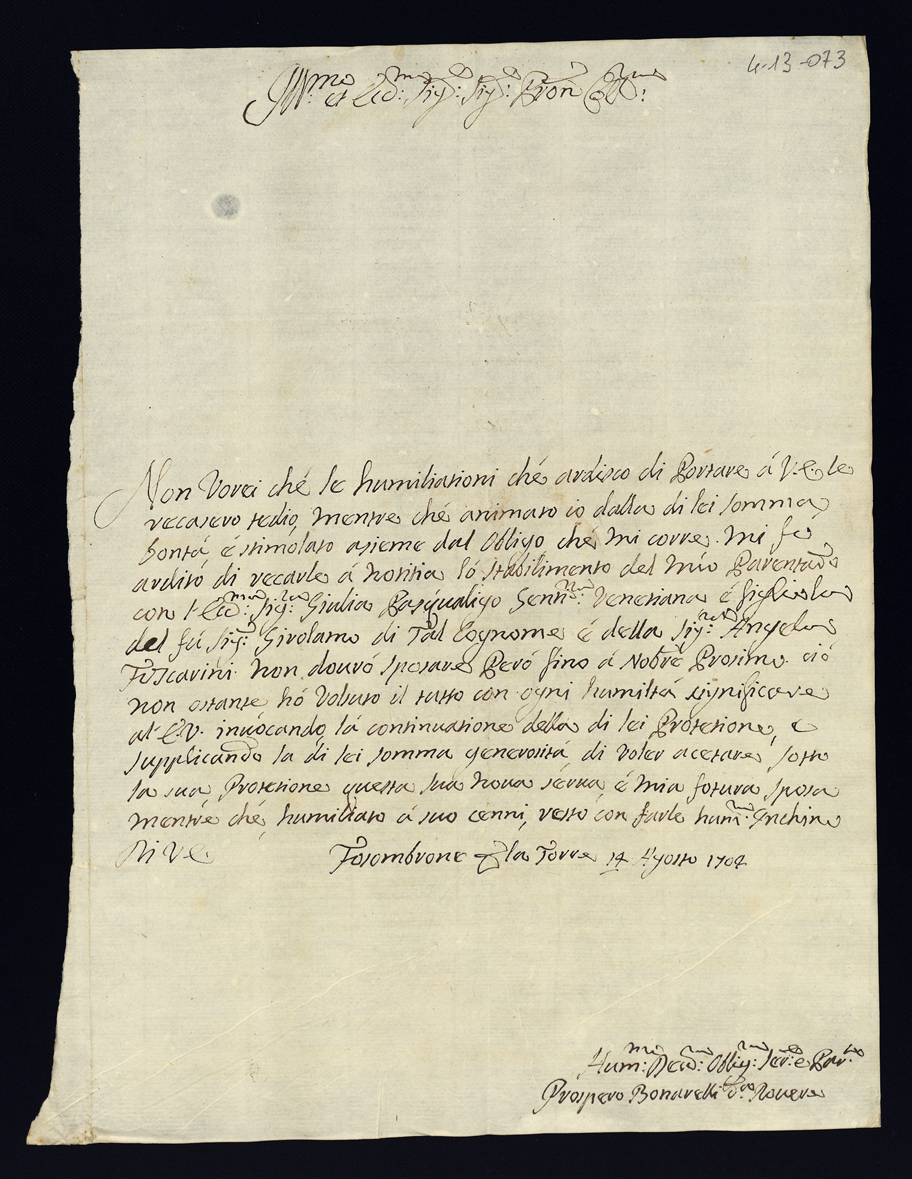 4-13-073
Ill.mo et Ecc.mo Sig.r Sig.r Pron Coll.mo
Non Vorei ché le humiliationi ché ardisco di Portare á V.E. le
recasero tedio, mentre ché animato io dalla di lei somma
bontá é stimólato asieme dal Obligo ché mi corre mi fó
arditó di recarle á notitia ló stabilimento del mio Parentado
con l'Ecc.ma Sig.ra Giulia Pasqualigo Gentil.na Venetiana é figliola
del fú Sig.r Girolamo di Tal Cognome é della Sig.ra Angela
Foscarini non douró sposare Peró fino á Nobré Prosimo ció
non ostante hó Voltuto il tutto con ogni humiltá significare
al E.V. inuócando lá continuatione della di lei Protetione, e
supplicando la di lei somma generositá di voler acetare sotto
la sua Protetione questa sua noua serua é mia fotura sposa
mentré ché humiliato á suo cenni, restó con farle hum.mo Inchino
Di V.E. Fosombrone la Torre 14 Agosto 1704
Hum.mo Deu.mo Oblig.mo Ser.e e Par.te
Prospero Bonarelli Rouere